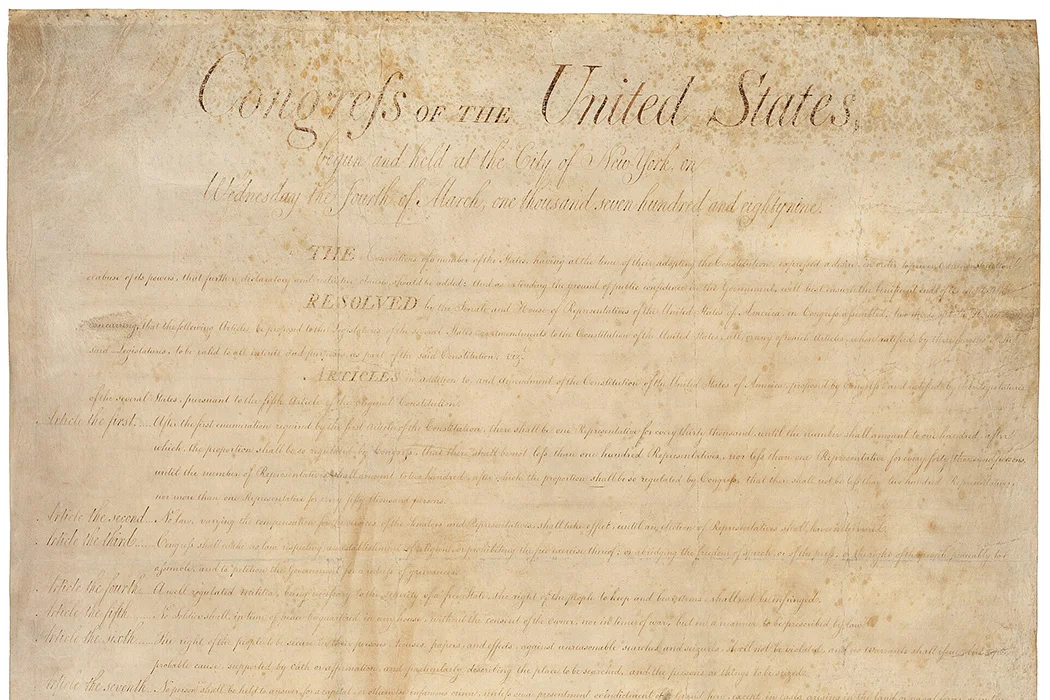 Congreſs OF THE United States,
begun and held at the City of New York, on
Wednesday the fourth of March, one thousand seven hundred and eighty nine.
THE Conventions of a number of the States, having at the time of their adopting the Constitution, expressed a desire, in order to prevent
or abuse of its powers, that further declaratory and restrictive clauses should be added: And as extending the ground of public confidence in the Government, will best ensure the beneficent ends of
RESOLVED by the Senate and House of Representatives of the United States of America, in Congreſs aſsembled, two thirds of
concurring, that the following Articles be proposed to the Legislatures of the several States, as amendments to the Constitution of the United States, all, or any of which Articles, when ratified by three fourths of the
said Legislatures, to be valid to all intents and purposes, as part of the said Constitution; viz.
ARTICLES in addition to, and Amendment of the Constitution of the United States of America, proposed by Congreſs, and ratified by the Legislatures
of the several States, pursuant to the fifth Article of the original Constitution.
Article the first.... After the first enumeration required by the first Article of the Constitution, there shall be one Representative for every thirty thousand, until the number shall amount to one hundred, after
which, the proportion shall be so regulated by Congreſs, that there shall be not leſs than one hundred Representatives, nor leſs than one Representative for every forty thousand persons,
until the number of Representatives shall amount to two hundred, after which, the proportion shall be so regulated by Congreſs, that there shall not be leſs than two hundred Representatives,
nor more than one Representative for every fifty thousand persons.
Article the second... No law, varying the compensation for the services of the Senators and Representatives, shall take effect, until an election of Representatives shall have intervened.
Article the third.... Congreſs shall make no law respecting an establishment of religion, or prohibiting the free exercise thereof; or abridging the freedom of speech, or of the preſs; or the right of the people peaceably to
aſsemble, and to petition the Government for a redreſs of grievances.
Article the fourth.. A well regulated Militia, being neceſsary to the security of a free State, the right of the people to keep and bear Arms, shall not be infringed.
Article the fifth.... No Soldier shall, in time of peace be quartered in any house, without the consent of the Owner, nor in time of war, but in a manner to be prescribed by law.
Article the sixth... The right of the people to be secure in their persons, houses, papers, and effects, against unreasonable searches and seizures, shall not be violated, and no Warrants shall iſsue, but upon
probable cause, supported by Oath or affirmation, and particularly describing the place to be searched, and the persons or things to be seized.
Article the seventh.. No person shall be held to answer for a capital, or otherwise infamous crime, unleſs on a presentment or indictment of a Grand Jury, except in cases arising in the land